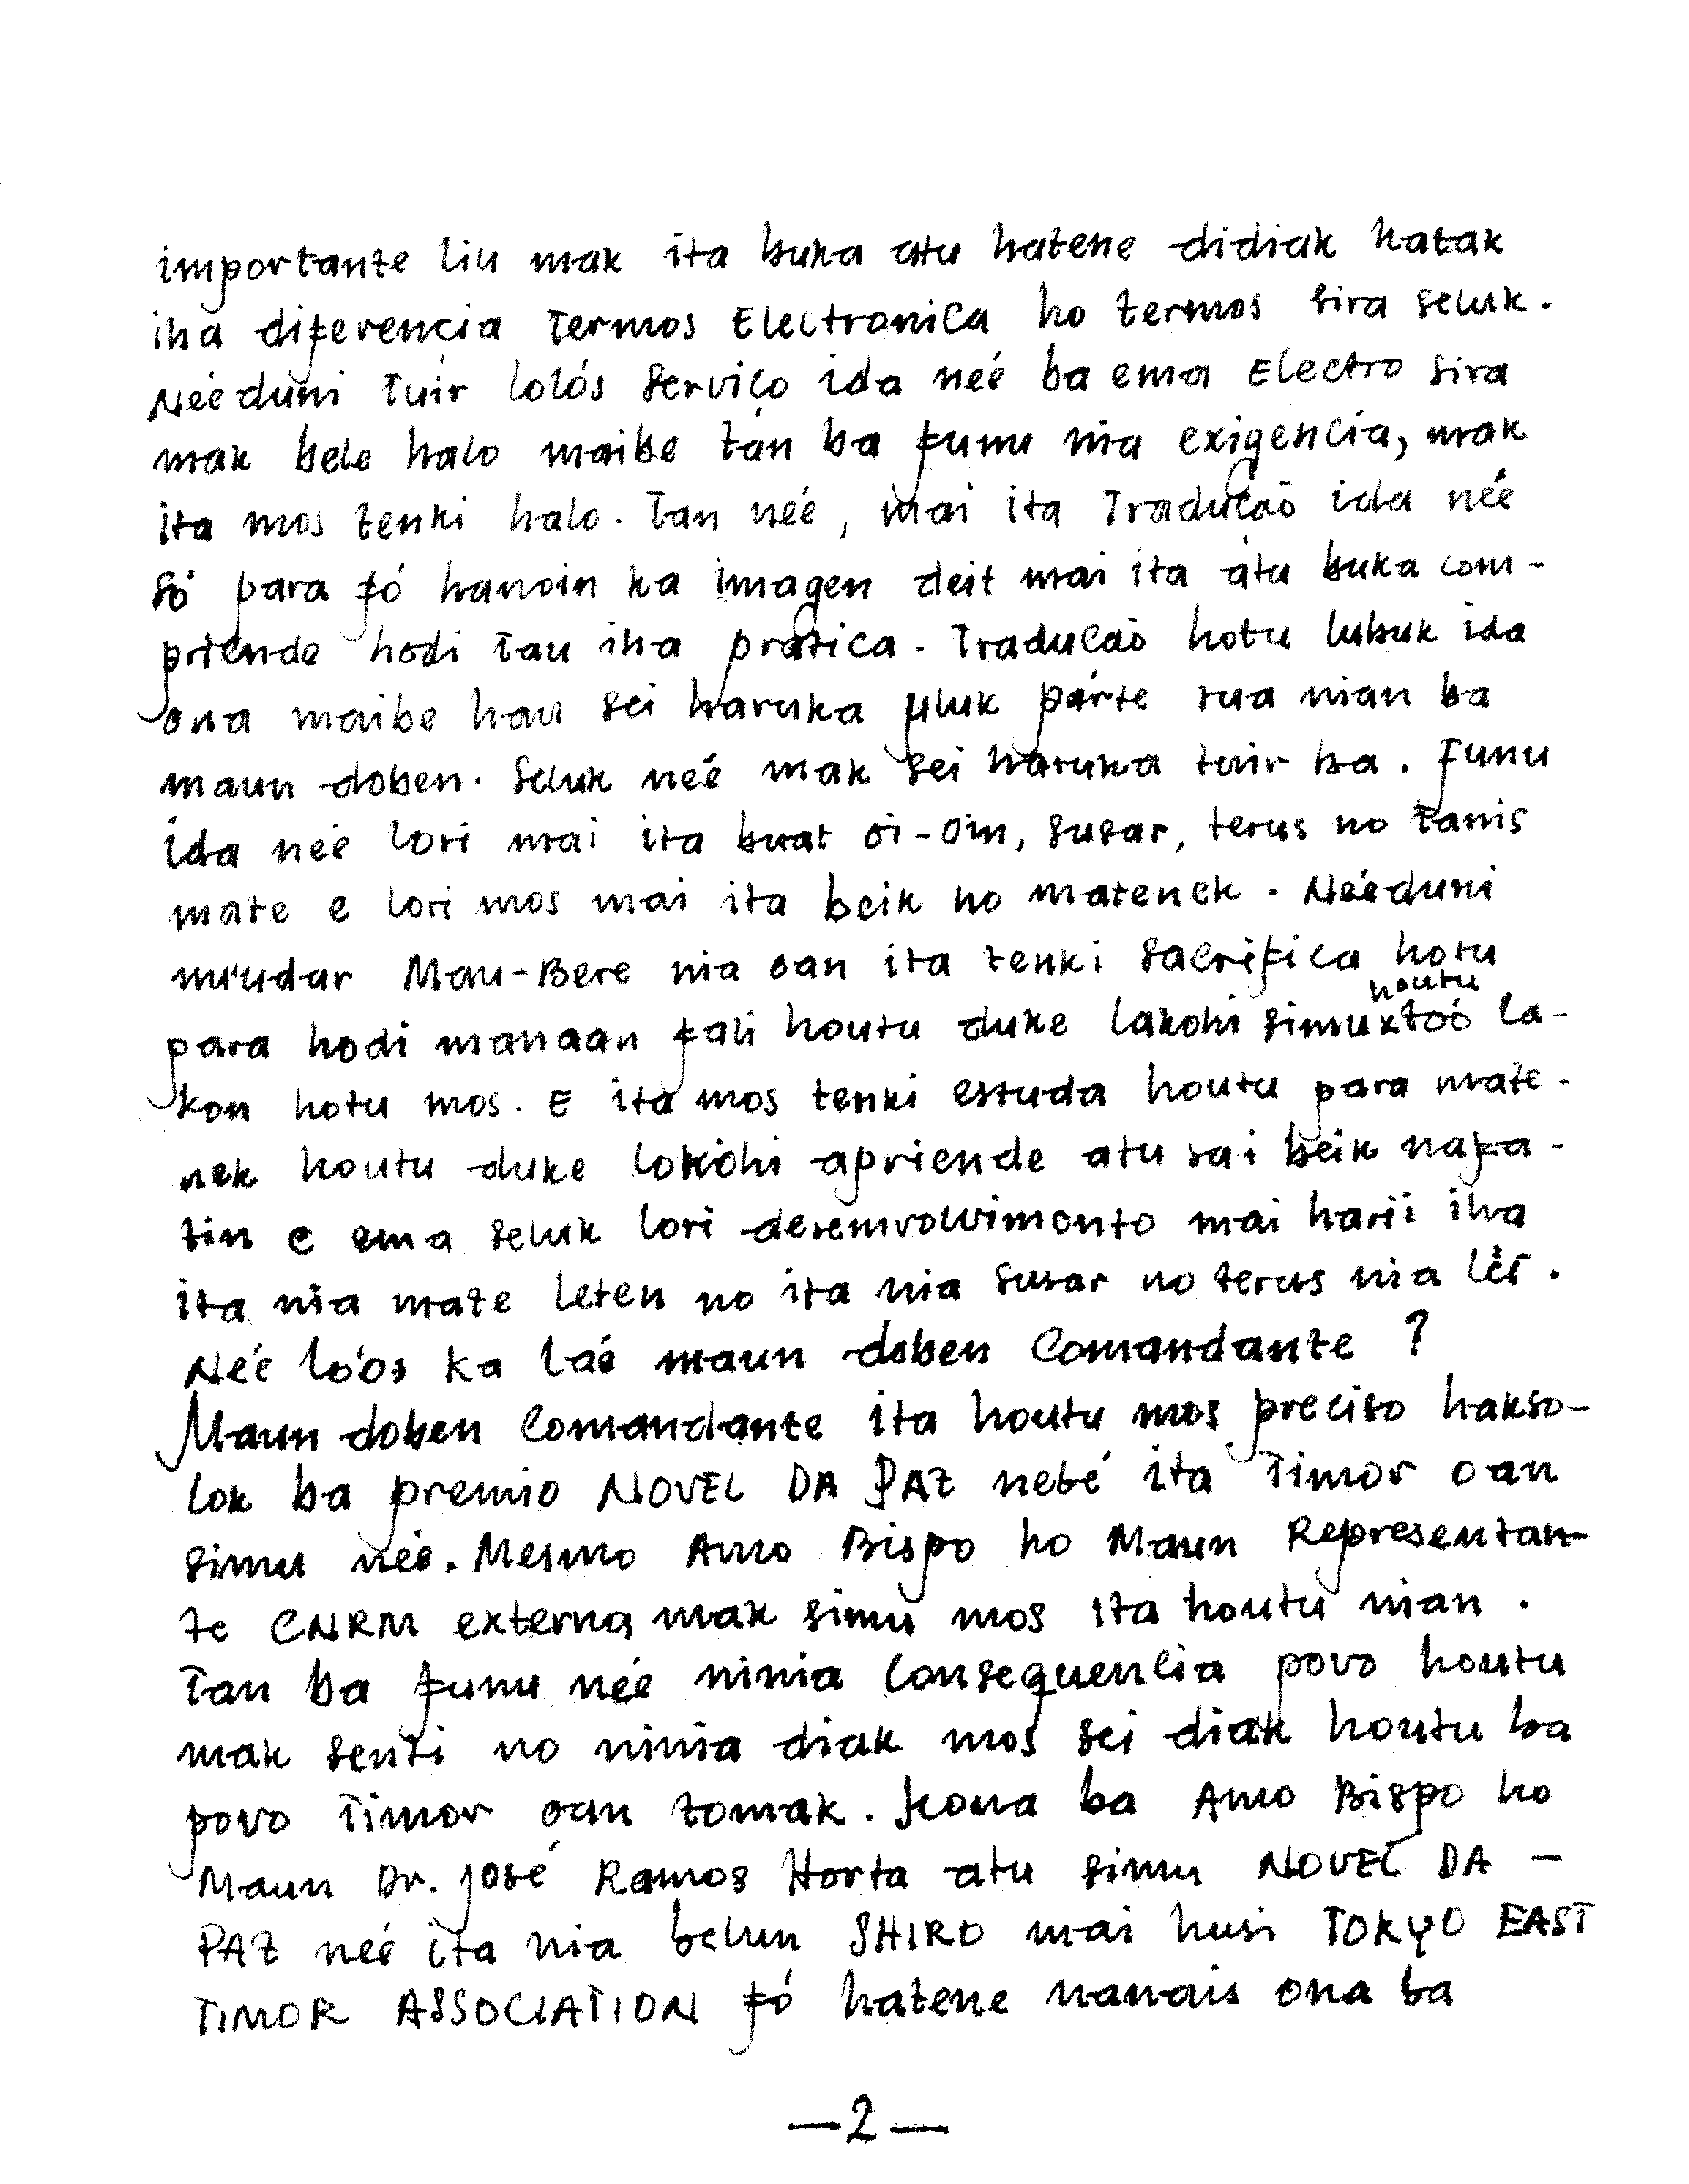 importante liu mak ita buka atu hatene didiak katak
iha diferencia Termos Electronica ho termos sira seluk.
Néé duni tuir lolós serviço ida néé ba ema Electro sira
mak bele halo maibe tán ba funu nia exigencia, mak
ita mos tenki halo. Tan néé, mai ita Tradução ida néé
só para fó hanoin ka imagen deit mai ita atu buka com-
priende hodi tau iha pratica. Tradução hotu lubuk ida
ona maibe hau sei haruka uluk párte rua nian ba
maun doben. Seluk néé mak sei haruka tuir ba. Funu
ida néé lori mai ita buat oi-oin, susar, terus no tanis
mate e lori mos mai ita beik no matenek. Nééduni
mu'udar Mau-Bere nia oan ita tenki sacrifica hotu
para hodi manaan fali houtu duke lakohi simu houtu toó la-
kon hotu mos. E ita mos tenki estuda houtu para mate-
nek houtu duke lokohi apriende atu sai beik nafa-
tin e ema seluk lori desemvolvimento mai harii iha
ita nia mate leten no ita nia susar no terus nia
Néé loós ka láé maun doben Comandante ?
Maun doben Comandante ita houtu mos preciso hakso-
lok ba premio NOVEL DA PAZ nebé ita Timor oan
simu néé. Mesmo Amo Bispo ho Maun Representan-
te CNRM externa mak simu mos ita houtu nian.
Tan ba funu néé ninia consequencia povo houtu
mak senti no ninia diak mos sei diak houtu ba
povo Timor oan tomak. Kona ba Amo Bispo ho
Maun Dr. José Ramos Horta atu simu NOVEL DA -
PAZ néé ita nia belun SHIRO mai husi TOKYO EAST
TIMOR ASSOCIATION fó hatene nanais ona ba
—2—